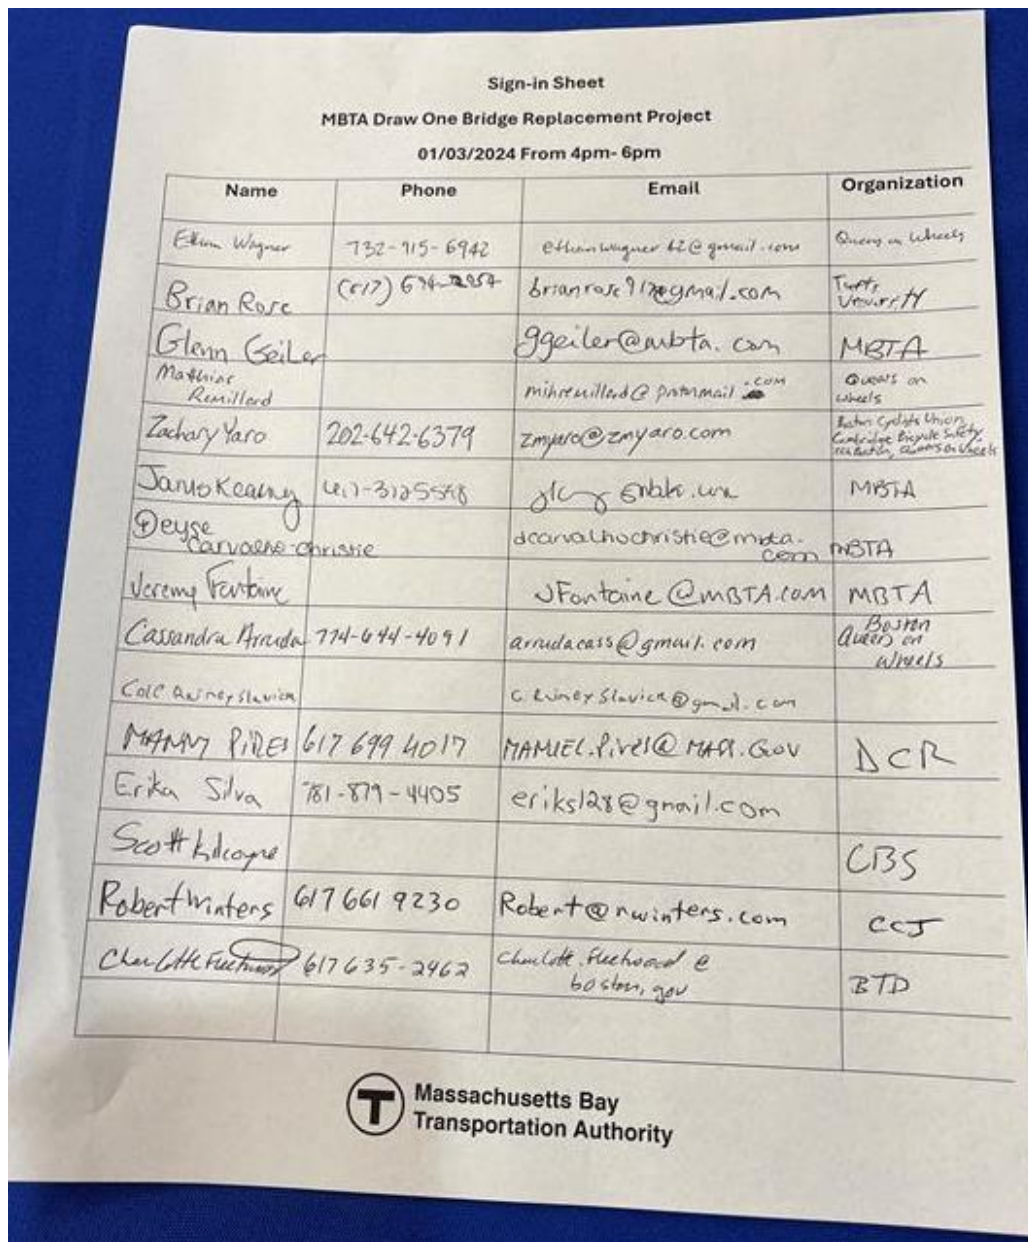 Sign-in Sheet
MBTA Draw One Bridge Replacement Project
01/03/2024 From 4pm- 6pm
Name Phone Email Organization
Ethan Wagner 732-915-6942 ethanwagner62@gmail.com Queers on Wheels
Brian Rose brianrose917@gmail.com Tufts
University
Glenn Geiler ggeiler@mbta.com MBTA
Mathias
Remillard mihremillard@protonmail.com Queers on
Wheels
Zachary Yaro 202-642-6379 zmyaro@zmyaro.com Boston Cyclists Union,
Cambridge Bicycle Safety,
Queers on Wheels
MBTA
Deyse
Carvalho-Christie dcarvalhochristie@mbta.
com MBTA
Jeremy Fontaine JFontaine@MBTA.com MBTA
Cassandra Arruda 774-644-4091 arrudacass@gmail.com Boston
Queers on
Wheels
Cole Rainey Slavick
MANNY PIRES 617 699 4017 DCR
Erika Silva 781-879-4405 eriks128@gmail.com
Scott Kilcoyne CBS
Robert Winters 617 661 9230 Robert@rwinters.com CCJ
Charlotte Fleetwood 617 635-2462 Charlotte.fleetwood@
boston.gov BTD
T Massachusetts Bay
Transportation Authority